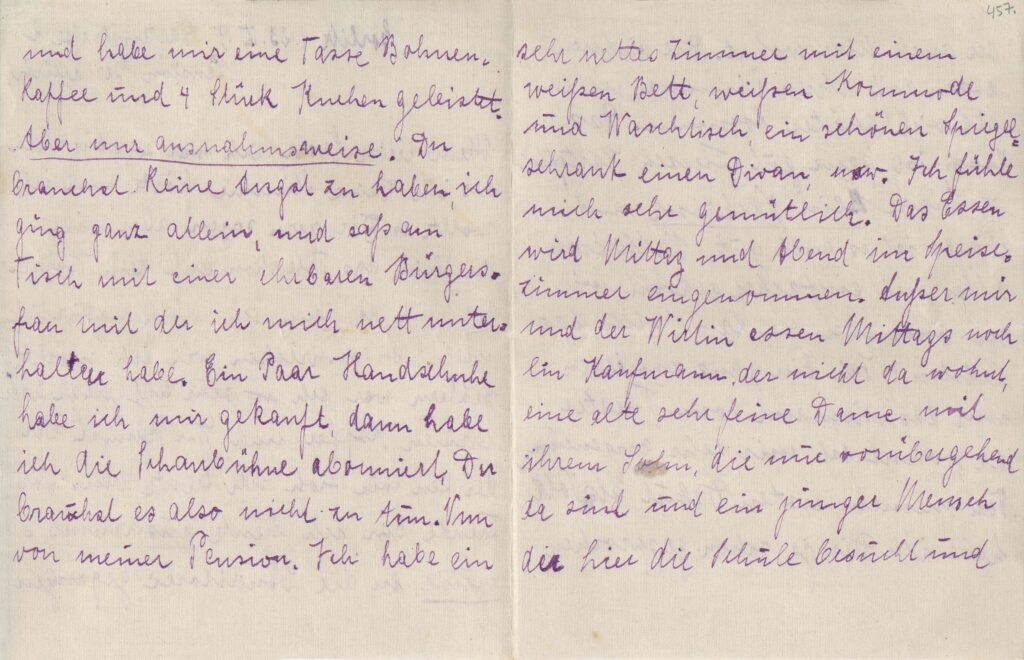 und habe mir eine Tasse Bohnen-
kaffee und 4 Stück Kuchen geleistet.
Aber nur ausnahmsweise. Du
brauchst keine Angst zu haben, ich
ging ganz allein, und saß am
Tisch mit einer ehrbaren Bürgers-
frau mit der ich mich nett unter-
halten habe. Ein Paar Handschuhe
habe ich mir gekauft, dann habe
ich die Schaubühne abonniert, Du
brauchst es also nicht zu tun. Nun
von meiner Pension. Ich habe ein
457.
sehr nettes Zimmer mit einem
weißen Bett, weißen Kommode
und Waschtisch, ein schönen Spiegel=
schrank einen Divan, usw. Ich fühle
mich sehr gemütlich. Das Essen
wird Mittag und Abend im Speise-
zimmer eingenommen. Außer mir
und der Wirtin essen Mittags noch
ein Kaufmann, der nicht da wohnt,
eine alte sehr feine Dame mit
ihrem Sohn, die nur vorübergehend
da sind und ein junger Mensch
der hier die Schule besucht und